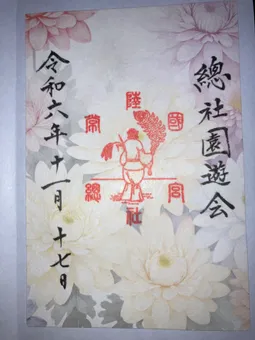 總社園遊会
常陸國總社宮
令和六年十一月十七日